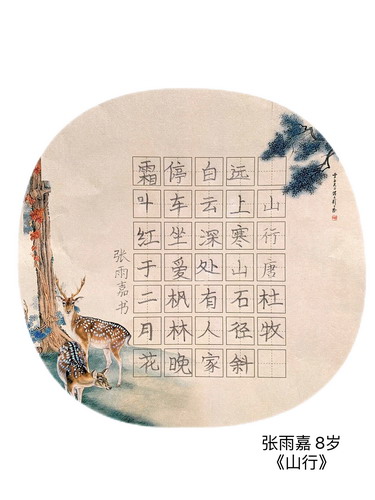 山行唐杜牧
远上寒山石径斜
白云深处有人家
停车坐爱枫林晚
霜叶红于二月花
张雨嘉书
张雨嘉 8岁
《山行》